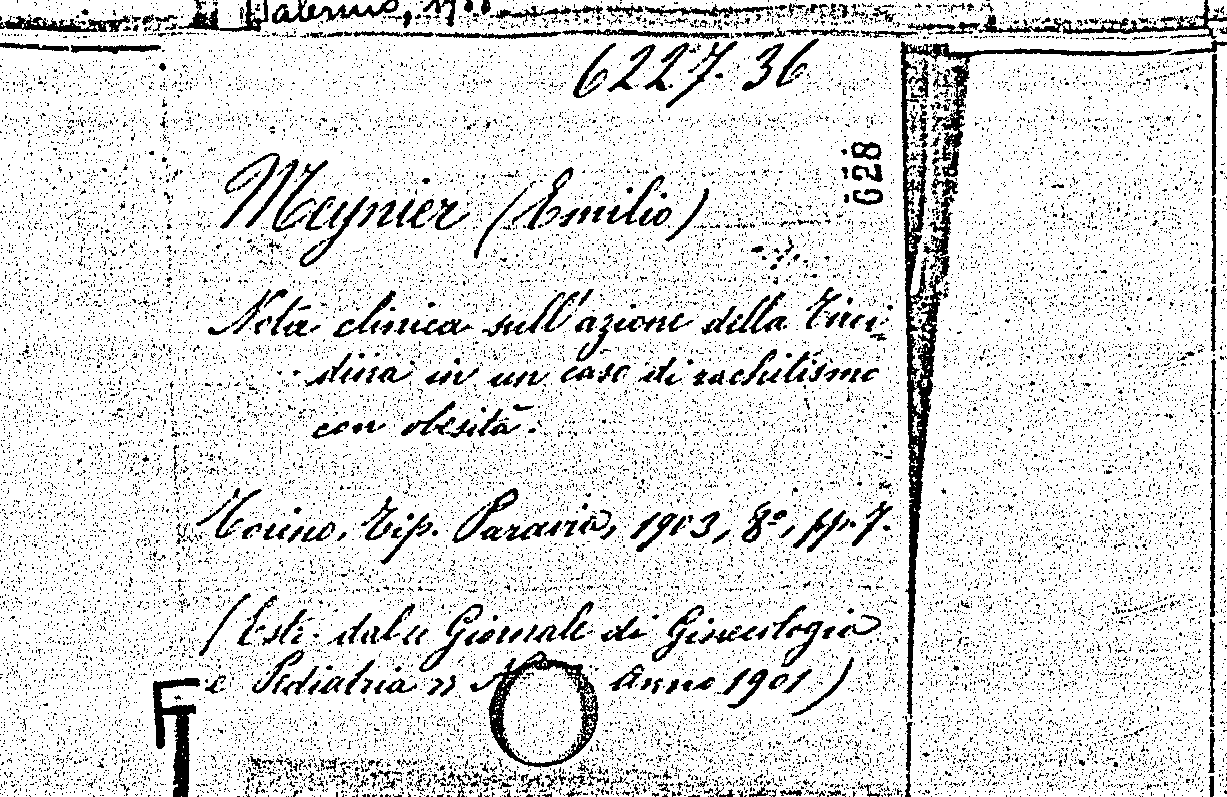 Palermo, 
6227.36
G28
Meynier (Emilio)
Nota clinica sull'azione della
dina in un caso di rachitismo
con obesità.
Torino, Tip. Paravia, 1903, 8º, pp. 7.
(Estr. dal „ Giornale di Ginecologia
e Pediatria „ Anno 1901)